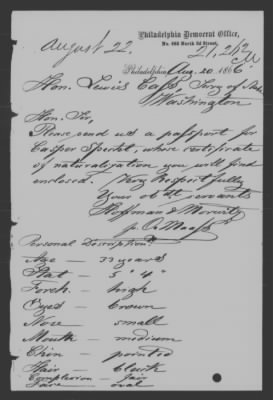 Philadelphia Democrat Office,
No. 465 North 3d Street,
August 22.
21,212
Philadelphia Aug. 20. 186
Hon. Lewis Cass, Secy of State
Washington
Hon. Sir,
Please send us a passport for
Casper Specht, whose certificate
of naturalization you will find
enclosed. Very respectfully
Your obt servants
Hoffman & Morwitz
Personal Description:
Age — 33 years
Stat — 5' 4"
Foreh. — high
Eyes — brown
Nose small
Mouth — medium
Chin — pointed
Hair — black
Complexion — fair
Face — oval